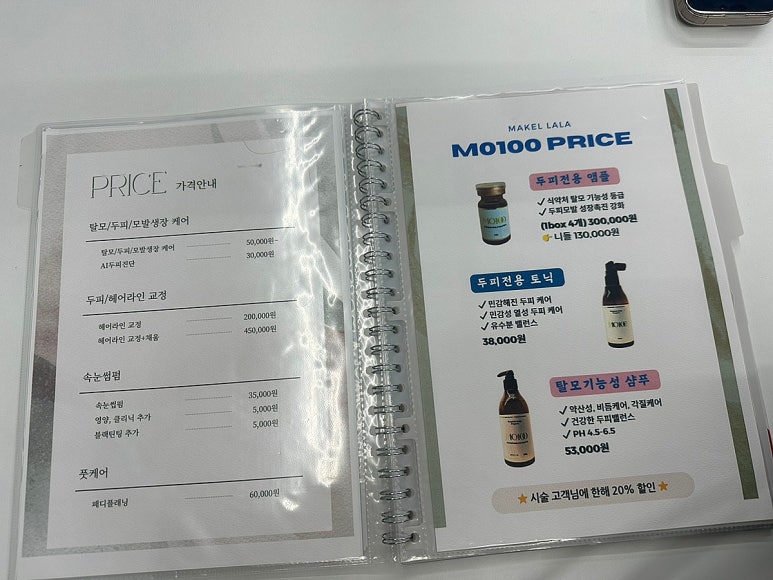 PRICE 가격안내
탈모/두피/모발생장 케어
탈모/두피/모발생장 케어 50,000원~
AI두피진단 30,000원
두피/헤어라인 교정
헤어라인 교정 200,000원
헤어라인 교정+채움 450,000원
속눈썹펌
속눈썹펌 35,000원
영양, 클리닉 추가 5,000원
블랙틴팅 추가 5,000원
풋케어
페디플래닝 60,000원
MAKEL LALA
M0100 PRICE
두피전용 앰플
✓ 식약처 탈모 기능성 등급
✓ 두피모발 성장촉진 강화
(1box 4개) 300,000원
👉 니들 130,000원
MO100
두피전용 토닉
✓ 민감해진 두피 케어
✓ 민감성 열성 두피 케어
✓ 유수분 밸런스
38,000원
MO100
탈모기능성 샴푸
✓ 약산성, 비듬케어, 각질케어
✓ 건강한 두피밸런스
✓ PH 4.5-6.5
53,000원
MO100
⭐ 시술 고객님에 한해 20% 할인 ⭐